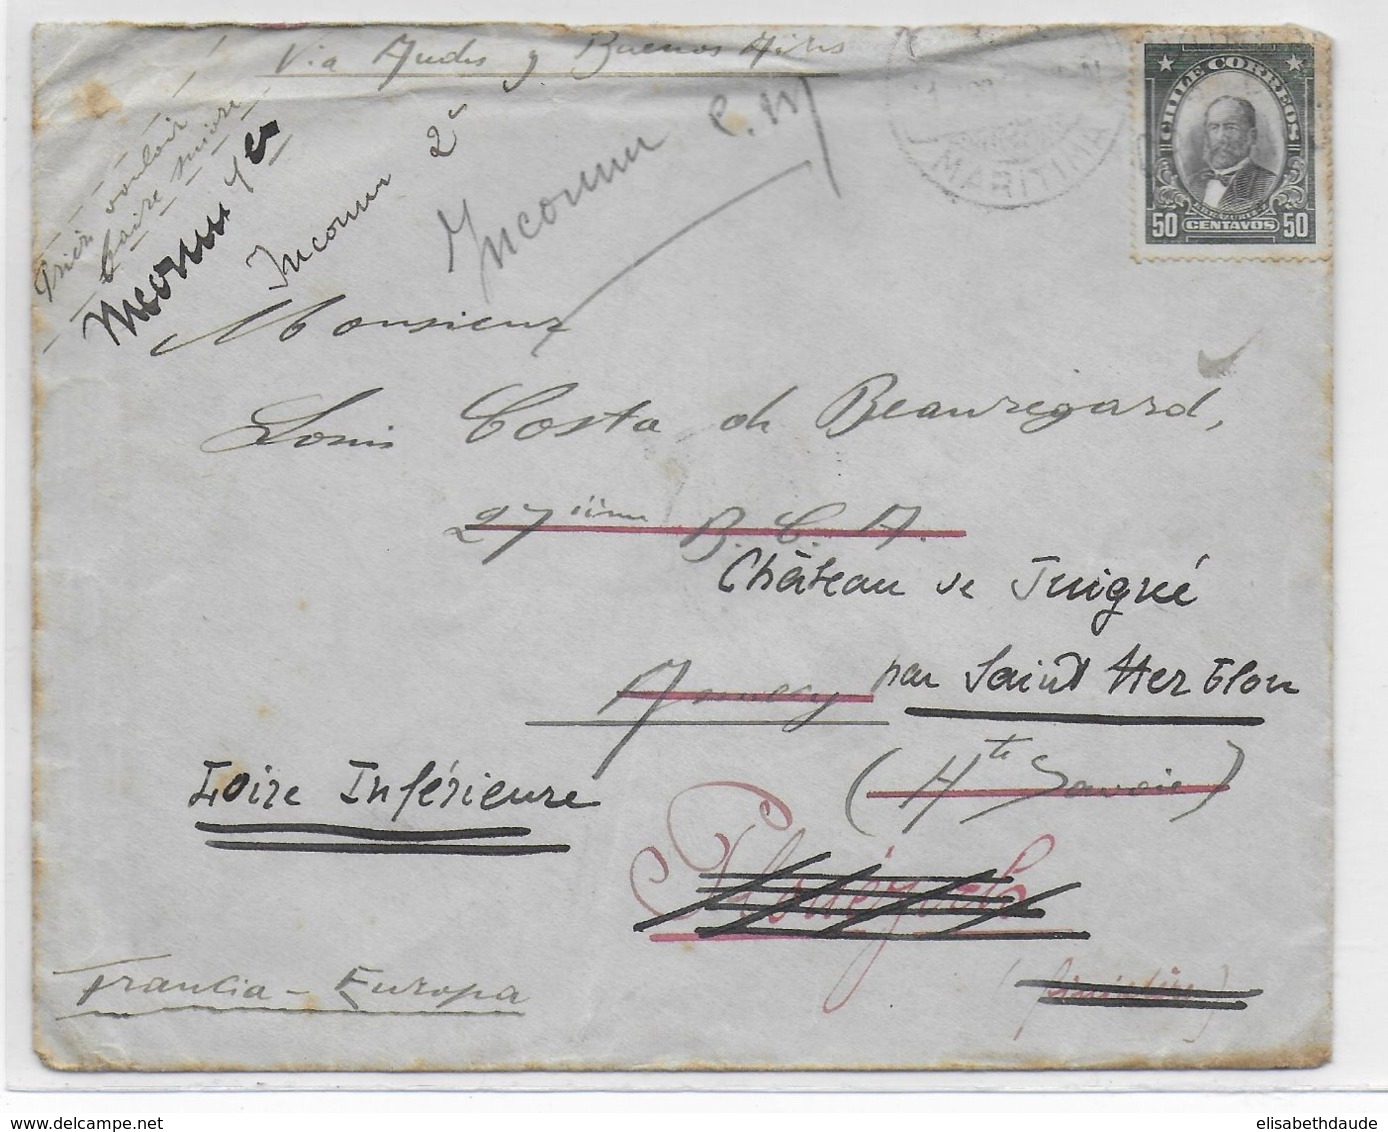 Via Andes y Buenos Aires
Prière vouloir
faire suivre
Inconnu 1er
Inconnu 2e
Inconnu
MARITIMA
CHILE CORREOS
50 CENTAVOS 50
Monsieur
Louis Costa de Beauregard,
27ième B. C. A.
Château de Juigné
Annecy par Saint Herblon
(Hte Savoie)
Loire Inférieure
Plouézoch
(Finistère)
Francia - Europa
elisabethdaude
delcampe.net